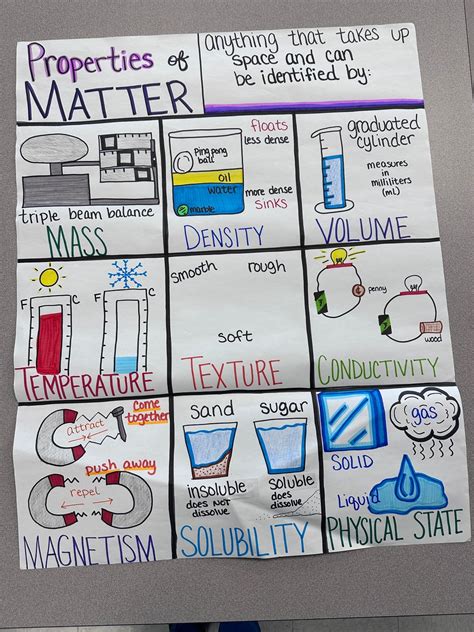 Properties of
MATTER
anything that takes up
space and can
be identified by:
triple beam balance
MASS
floats
less dense
Ping pong
ball
OIL
water
more dense
marble
sinks
DENSITY
graduated
cylinder
measures
in
milliliters
(mL)
VOLUME
F C
F C
TEMPERATURE
smooth rough
soft
TEXTURE
penny
wood
CONDUCTIVITY
attract
come
together
push away
repel
MAGNETISM
Sand
insoluble
does NOT
dissolve
Sugar
soluble
does
dissolve
SOLUBILITY
SOLID
gas
Liquid
PHYSICAL STATE